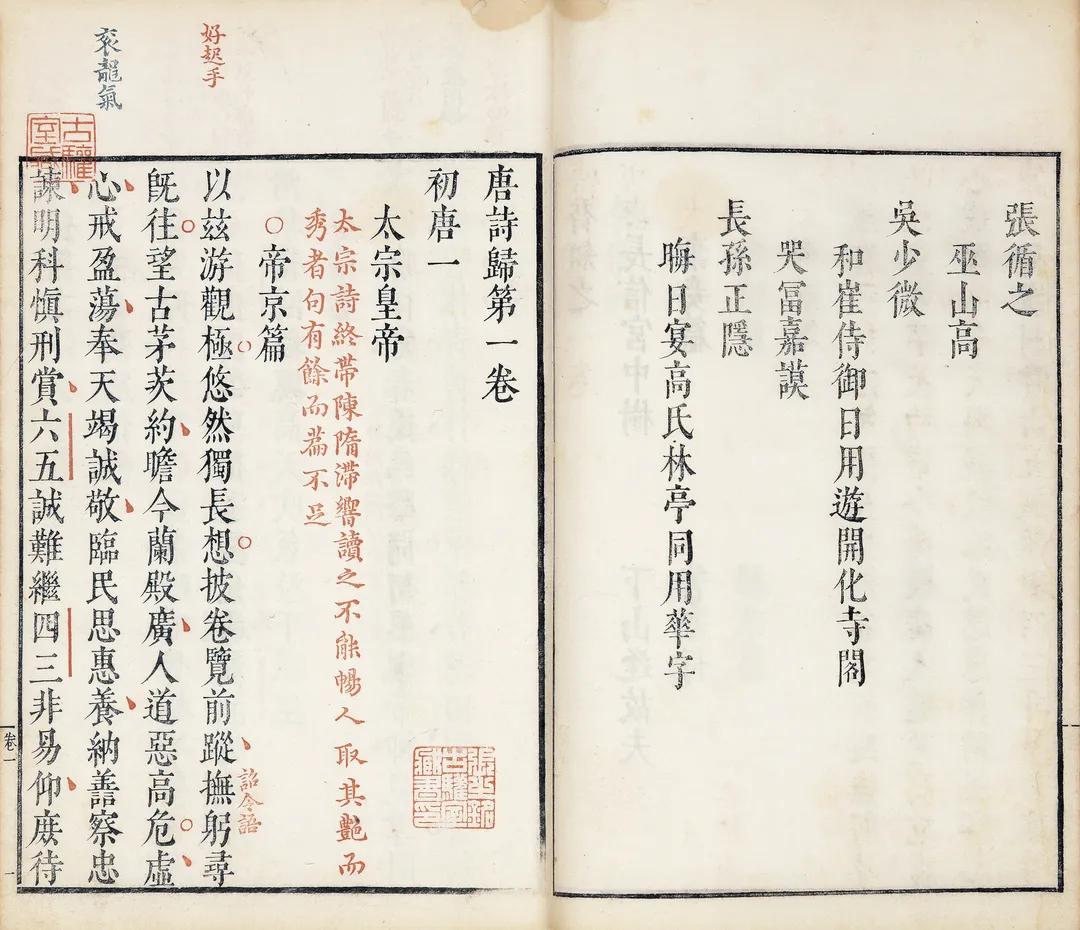 張循之
巫山高
吳少微
和崔侍御日用遊開化寺閣
哭冨嘉謨
長孫正隱
晦日宴高氏林亭同用華字
唐詩歸第一卷
初唐一
太宗皇帝
太宗詩終帶陳隋滯響讀之不能暢人取其艷而
秀者句有餘而篇不足
帝京篇
詔令語
好起手
以兹游觀極悠然獨長想披卷覽前蹤撫躬尋
旣往望古茅茨約瞻今蘭殿廣人道惡高危虛
袞龍氣
心戒盈蕩奉天竭誠敬臨民思惠養納善察忠
諫明科愼刑賞六五誠難繼四三非易仰庶待
古驩室
卷一
一